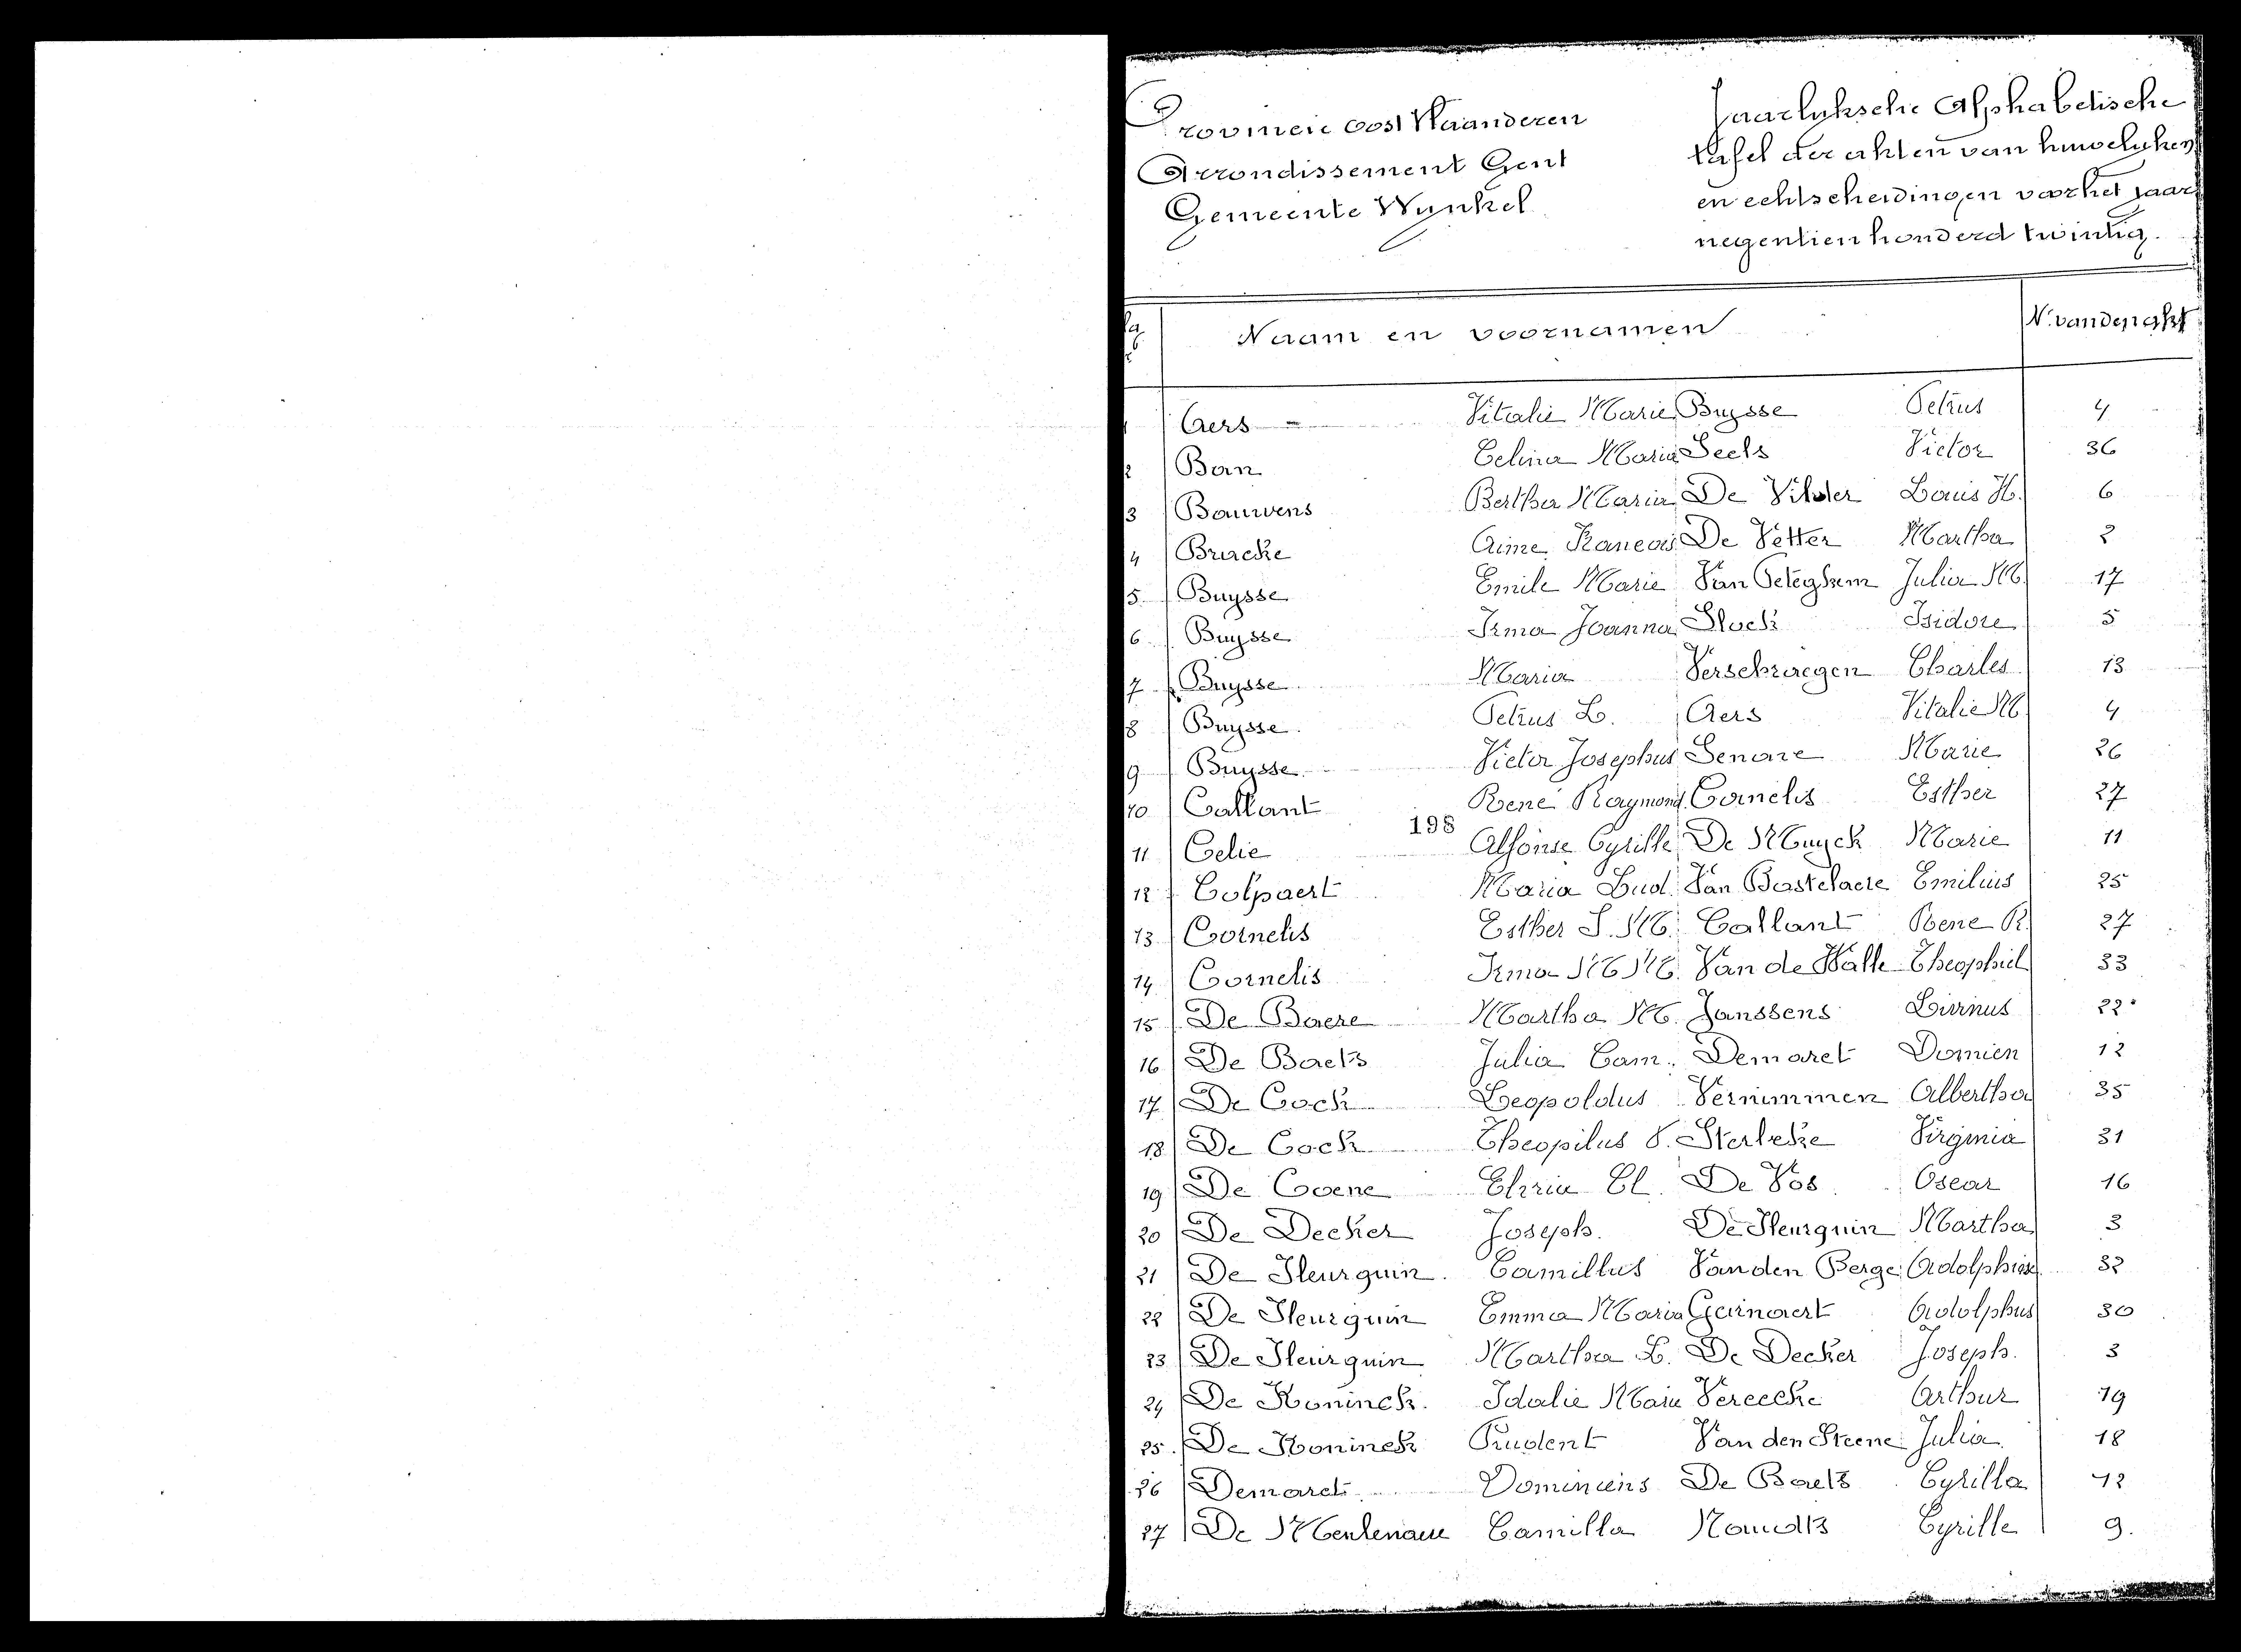 Provincie Oost Vlaanderen
Arrondissement Gent
Gemeente Wynkel
Jaarlyksche Alphabetische
tafel der akten van huwelyken
en echtscheidingen voor het jaar
negentien honderd twintig.
Naam en voornamen N. van den akt
1 Aers Vitalie Marie Buysse Petrus 4
2 Ban Celina Maria Seels Victor 36
3 Bauwens Bertha Maria De Vilder Louis H. 6
4 Bracke Aime Francois De Vetter Martha 2
5 Buysse Emile Marie Van Peteghem Julia M. 17
6 Buysse Irma Joanna Stock Isidore 5
7 Buysse Maria Verschraegen Charles 13
8 Buysse Petrus L. Aers Vitalie M 4
9 Buysse Victor Josephus Lenoire Marie 26
10 Callant René Raymond Cornelis Esther 27
198
11 Celie Alfonse Cyrille De Muyck Marie 11
12 Colpaert Maria Lud. Van Bastelaere Emilius 25
13 Cornelis Esther S. M. Callant Rene R. 27
14 Cornelis Irma M. M. Van de Walle Theophiel 33
15 De Baere Martha M. Janssens Livinus 22
16 De Baets Julia Cam. Demaret Domien 12
17 De Cock Leopoldus Vernimmen Albertha 35
18 De Cock Theopilus V. Sterbeke Virginia 31
19 De Coene Elvia Cl. De Vos Oscar 16
20 De Decker Joseph. De Fleurquin Martha 3
21 De Fleurquin. Camillus Van den Berge Adolphine 32
22 De Fleurquin Emma Maria Gainaert Adolphus 30
23 De Fleurquin Martha L. De Decker Joseph. 3
24 De Koninck. Idalie Marie Vereecke Arthur 19
25. De Koninck Prudent Van den Steene Julia 18
26 Demaret Dominicus De Baets Cyrilla 12
27 De Meulenaere Camilla Naudts Cyrille 9.